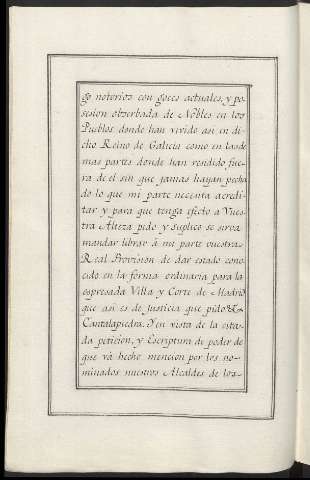 go notorios con goces actuales, y po-
sesion obserbada de Nobles en los
Pueblos donde han vivido asi en di-
cho Reino de Galicia como en las de
mas partes donde han rendido fue-
ra de el sin que jamas hayan pecha
do lo que mi parte necesita acredi-
tar y para que tenga efecto a Vues-
tra Alteza pido y suplico se sirva
mandar librar à mi parte vuestra
Real Provision de dar estado cono-
cido en la forma ordinaria para la
espresada Villa y Corte de Madrid
que asi es de justicia que pido &.
Cantalapiedra. Y en vista de la cita-
da peticion, y Escriptura de poder de
que vá hecho mencion por los no-
minados nuestros Alcaldes de los